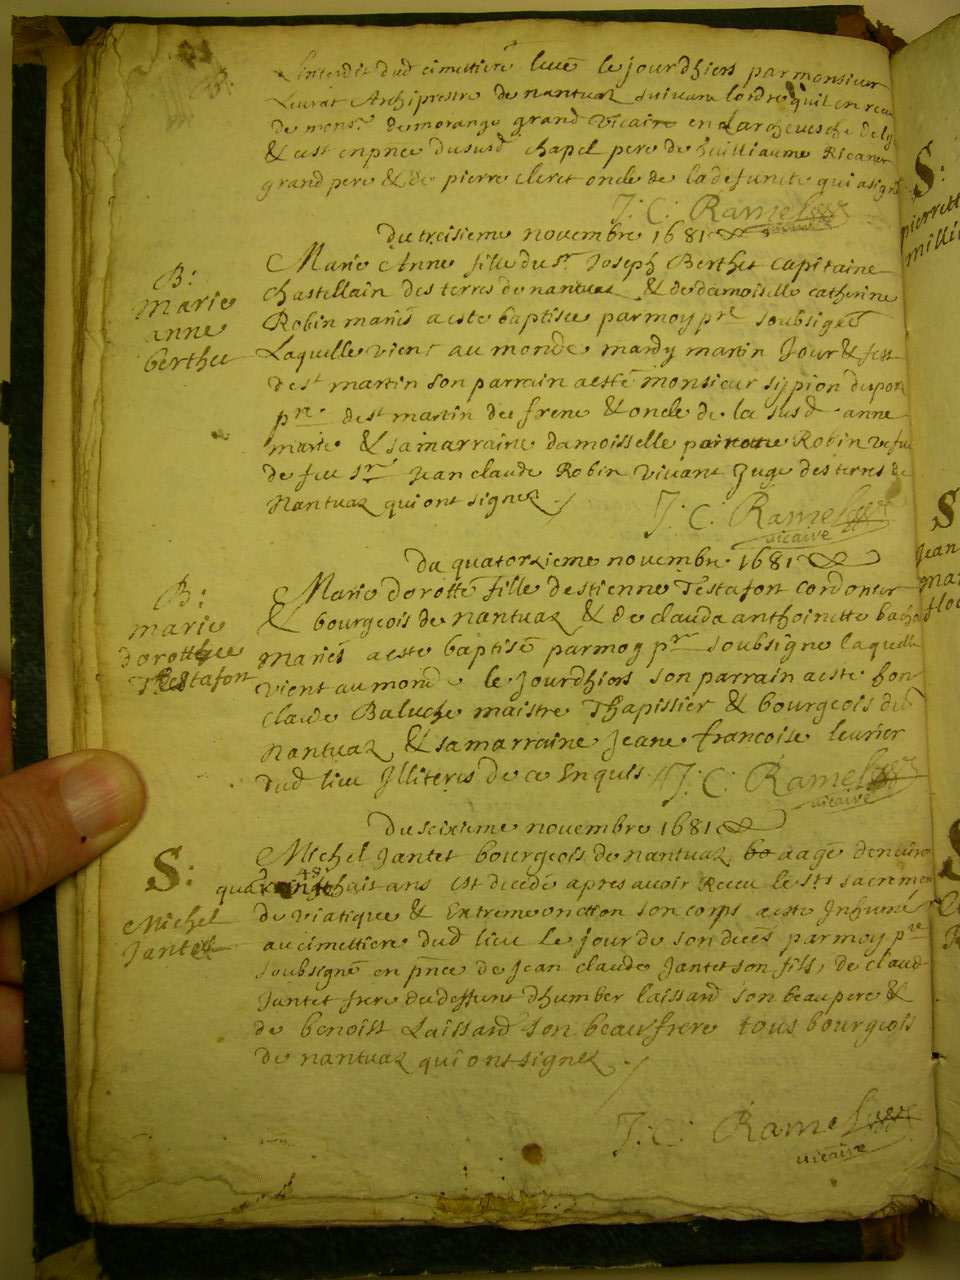 B:
L'interdit dud cimettiere levé le jourdhier par monsieur
Leurat Archiprestre de nantuaz suivant lordre quil en receu
de mons.r demorange grand vicaire en Larchevesché de
& est en pnce dususd chapel pere de huilliaume
grand pere & de pierre cleret oncle de la defuncte qui a signé
J: C: Ramel
vicaire
Du treisieme novembre 1681
B:
Marie
anne
berthet
Marie Anne fille du s.r Joseph Berthet capitaine
chastellain des terres de nantuaz & de damoiselle catherine
Robin mariés a esté baptisee par moy p.re soubsigné
Laquelle vient au monde mardy martin jour & feste
de s.t martin son parrain a esté monsieur sypion dupon
p.re de s.t martin du frene & oncle de la susd anne
marie & sa marraine damoisselle pairotte Robin vefve
de feu s.r Jean claude Robin vivant juge des terres de
Nantuaz qui ont signez
J: C: Ramel
vicaire
Du quatorzieme novembre 1681
B:
marie
dorotthee
Testafon
Marie dorotté fille destienne Testafon cordonier
& bourgeois de nantuaz & de clauda anthoinette
Mariés a esté baptisé par moy p.re soubsigné laquelle
vient au monde le jourdhier son parrain a esté hon
claude Baluche maistre Thapissier & bourgeois du
Nantuaz & sa marraine jeane francoise levrier
dud lieu Illiterés de ce Enquis J: C: Ramel
vicaire
Du seixieme novembre 1681
S:
Michel
Jantet
Michel Jantet bourgeois de nantuaz aagé denviron
48
huit ans est decedé apres avoir Receu le s.ts sacremen
de viatique & Extremeonction son corps a esté Inhumé
au cimettiere dud lieu le jour de son deces par moy p.re
soubsigné en pnce de jean claude Jantet son fils, de claude
Jantet frere du deffunt dhumber laissard son beaupere &
de benoist Laissard son beaufrere tous bourgeois
de nantuaz qui ont signez
J: C: Ramel
vicaire
S:
pierrette
S
jean